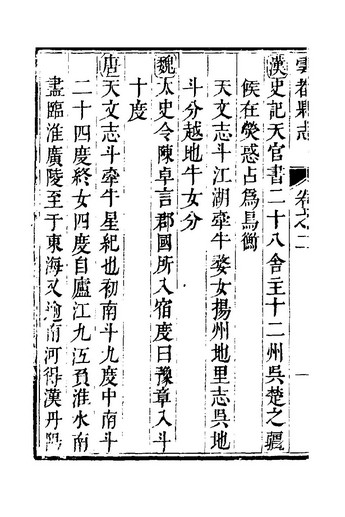 雩都縣志 卷之二 一
漢史記天官書二十八舍主十二州吳楚之疆
候在熒惑占爲鳥衡
天文志斗江湖牽牛婺女揚州地里志吳地
斗分越地牛女分
魏太史令陳卓言郡國所入宿度曰豫章入斗
十度
唐天文志斗牽牛星紀也初南斗九度中南斗
二十四度終女四度自廬江九江負淮水南
盡臨淮廣陵至于東海又逾南河得漢丹陽